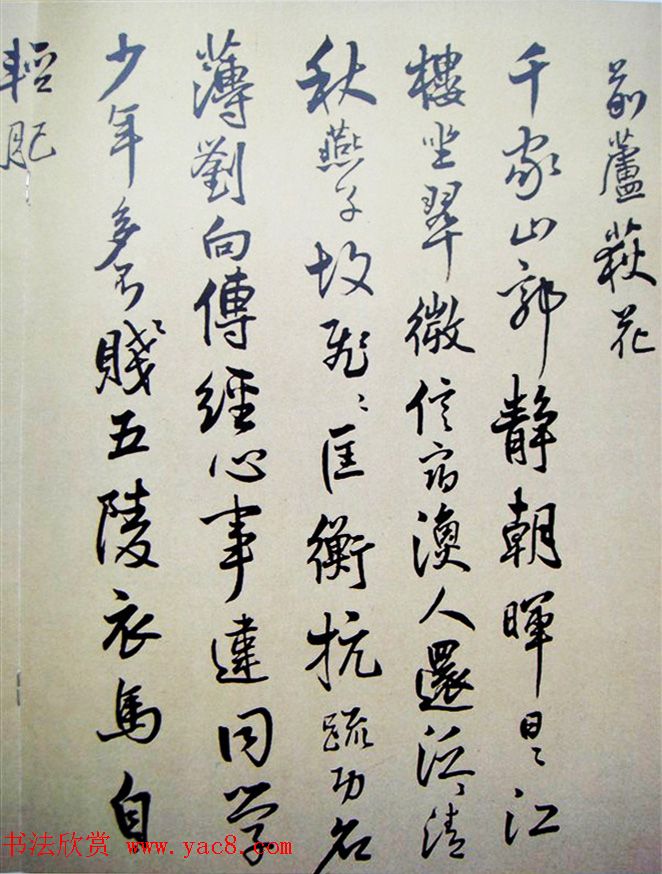 前蘆荻花
千家山郭静朝暉日〻江
樓坐翠微信宿漁人還泛〻清
秋燕子故飛〻匡衡抗疏功名
薄劉向傳經心事違同学
少年多不賤五陵衣馬自
輕肥
书法欣赏 www.yac8.com